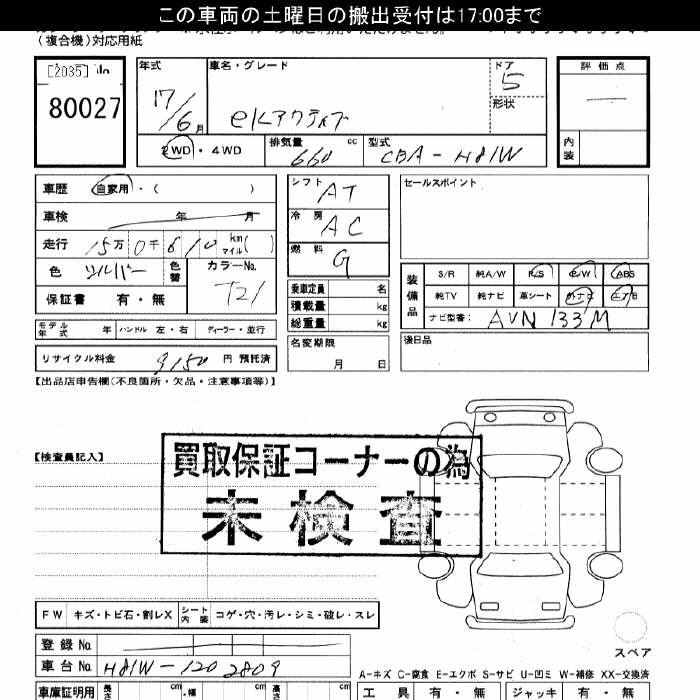 この車両の土曜日の搬出受付は17:00まで
(複合機)対応用紙
[2035] No
80027
年式
17/6月
車名・グレード
eKアクティブ
ドア
5
形状
評価点
—
内装
2WD・4WD
排気量
660 cc
型式
CBA-H81W
車歴 自家用・( )
車検 年 月
走行 15万0千610 km マイル ( )
色 シルバー 色替 カラーNo. T21
保証書 有・無
シフト AT
冷房 AC
燃料 G
乗車定員 名
積載量 kg
総重量 kg
名変期限 月 日
セールスポイント
装備品
S/R 純A/W P/S P/W ABS
純TV 純ナビ 革シート 外ナビ ETB
ナビ型番: AVN 133M
後日品
モデル年式 年 ハンドル 左・右 ディーラー・並行
リサイクル料金 9150 円 預託済
【出品店申告欄(不良箇所・欠品・注意事項等)】
【検査員記入】
買取保証コーナーの為
未検査
FW キズ・トビ石・割レX シート内装 コゲ・穴・汚レ・シミ・破レ・スレ
スペア
登録No.
車台No. H81W-1202809
A-キズ C-腐食 E-エクボ S-サビ U-凹ミ W-補修 XX-交換済
車庫証明用 長さ cm ・幅 cm 高さ cm
工具 有・無 ジャッキ 有・無